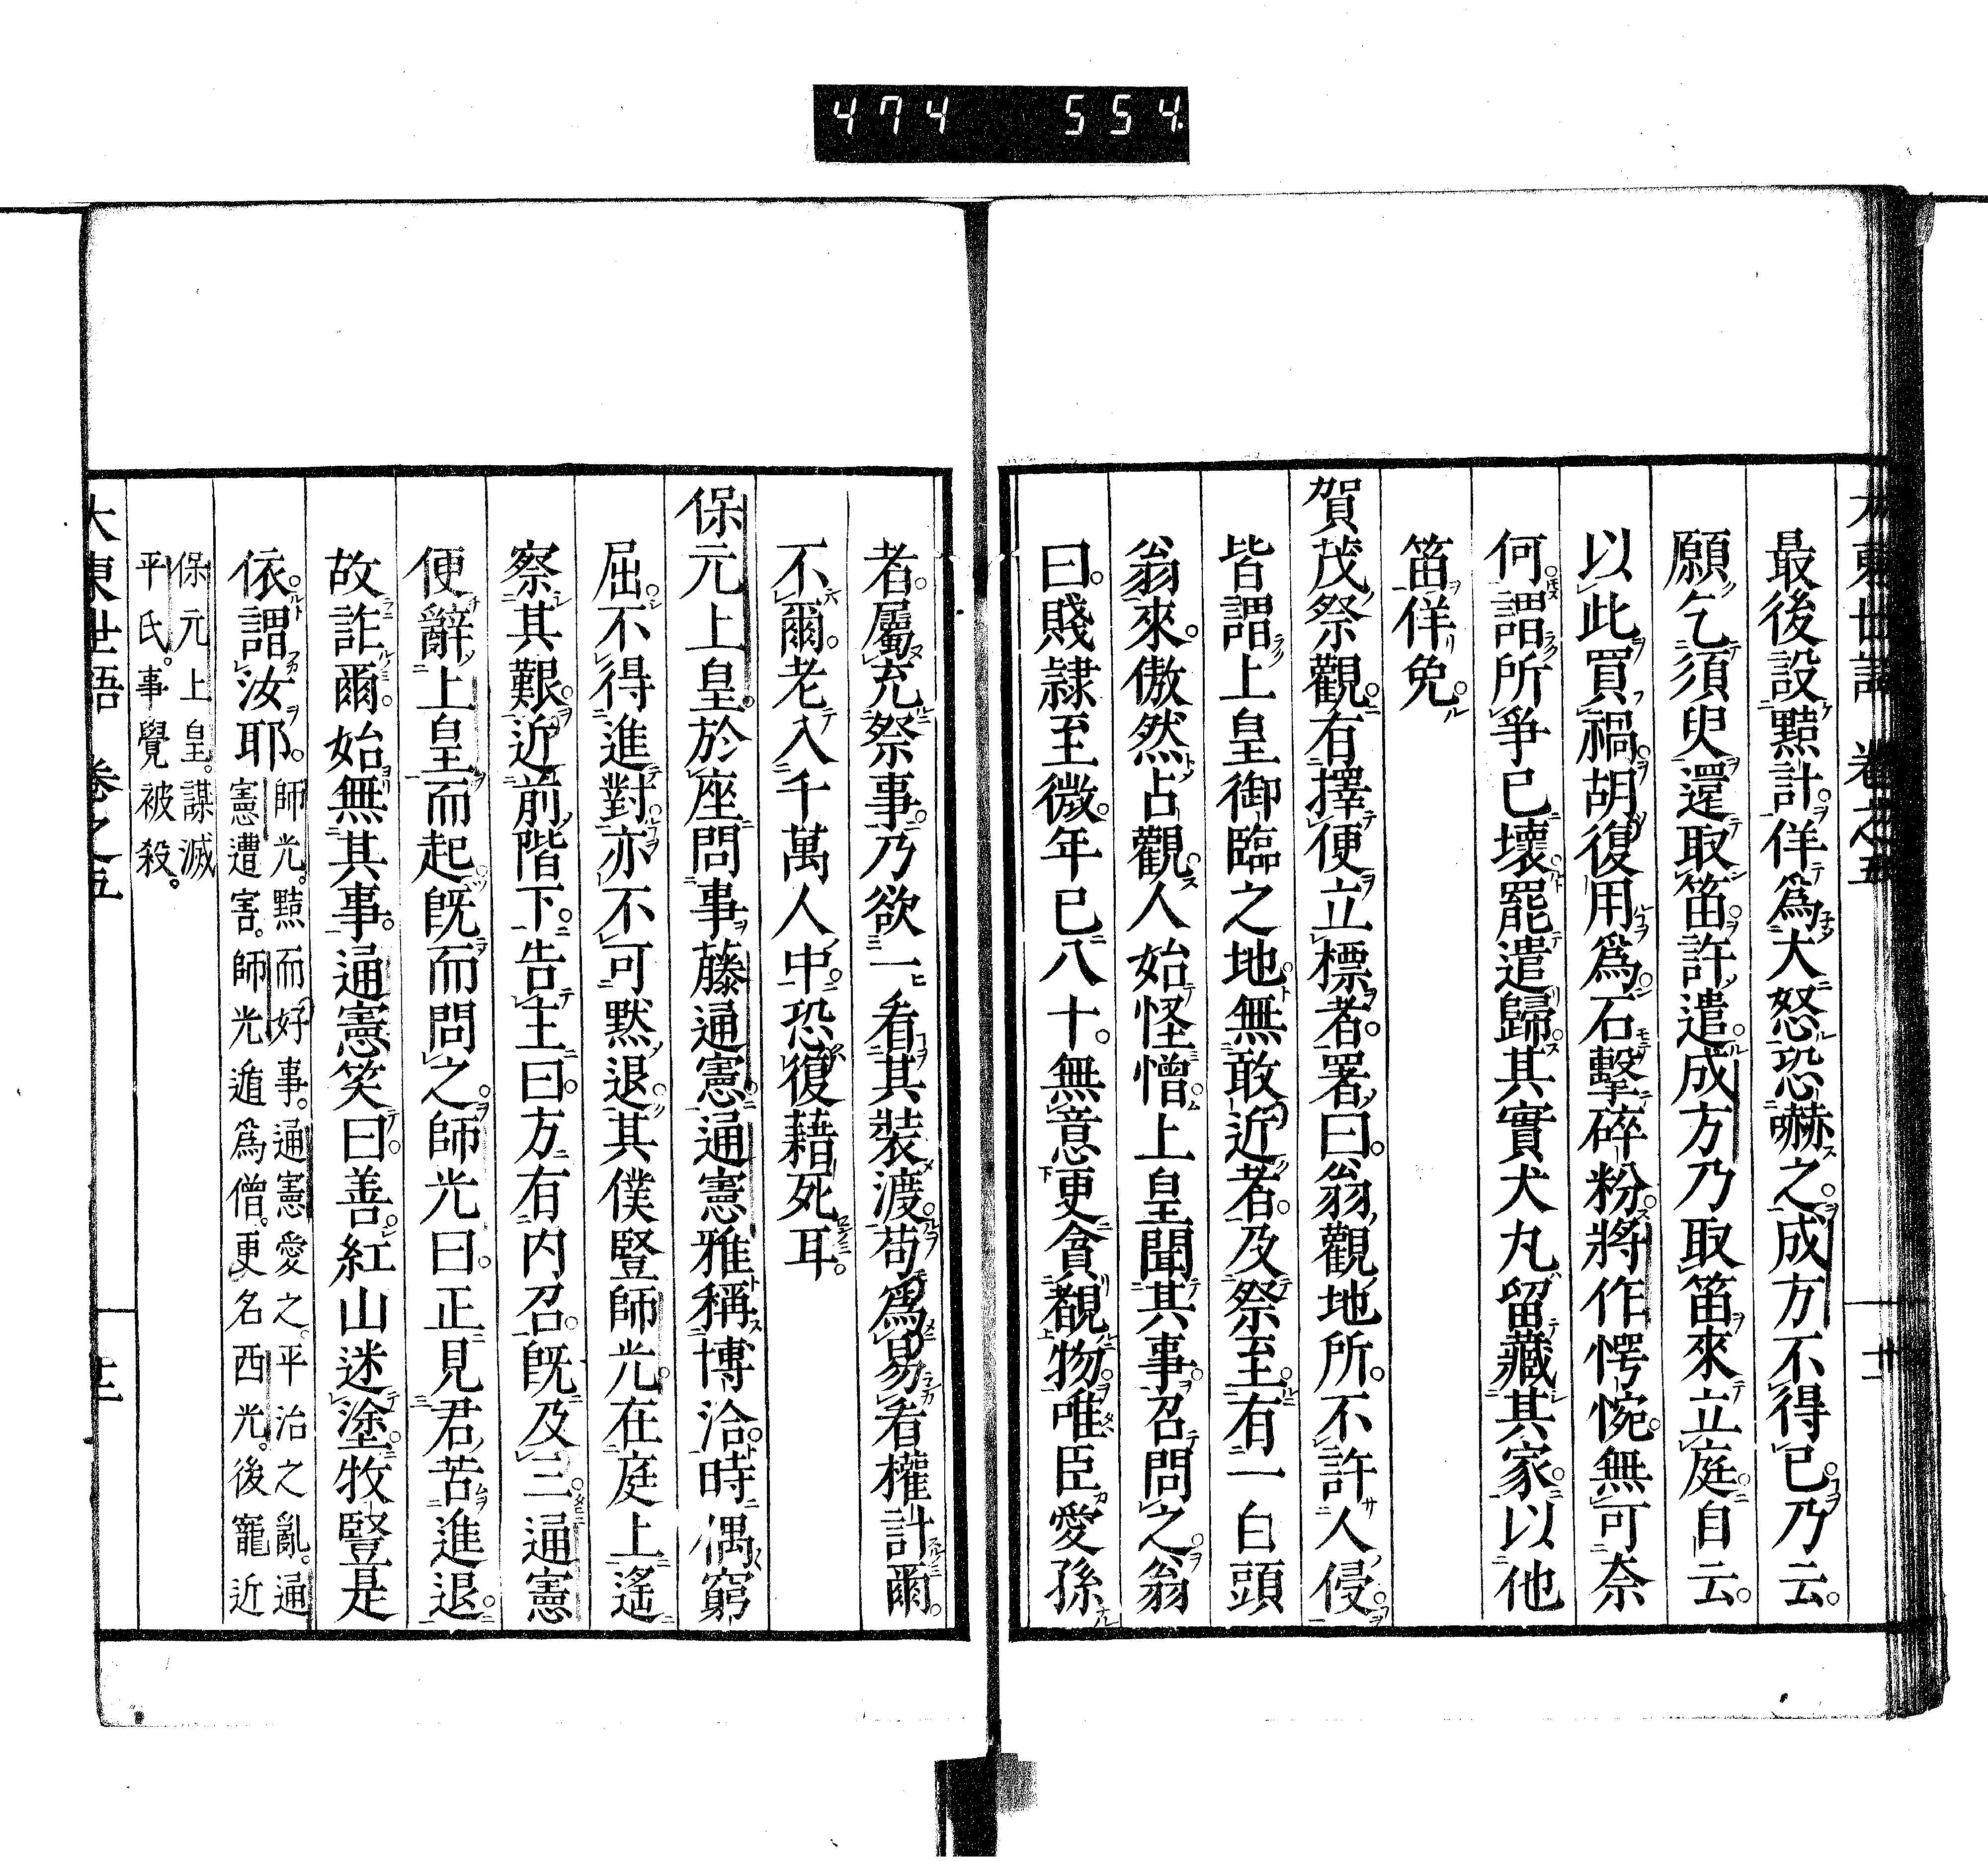 474 554
大東世語 卷之五
最後設黠計佯爲大怒恐嚇之成方不得已乃云
願乞須臾還取笛許遣成方乃取笛來立庭自云
以此買禍胡復用爲石擊碎粉將作愕惋無可奈
何謂所爭已壞罷遣歸其實犬丸留藏其家以他
笛佯免
賀茂祭觀有擇便立標者署曰翁觀地所不許人侵
皆謂上皇御臨之地無敢近者及祭至有一白頭
翁來傲然占觀人始怪憎上皇聞其事召問之翁
曰賤隷至微年已八十無意更貪觀物唯臣愛孫
者屬充祭事乃欲一看其裝渡苟爲易看權計爾
不爾老入千萬人中恐復藉死耳
保元上皇於座問事藤通憲通憲雅稱博洽時偶窮
屈不得進對亦不可默退其僕豎師光在庭上遙
察其艱近前階下告主曰方有内召既及三通憲
便辭上皇而起既而問之師光曰正見君苦進退
故詐爾始無其事通憲笑曰善紅山迷塗牧豎是
依謂汝耶師光黠而好事通憲愛之平治之亂通
憲遭害師光遁爲僧更名西光後寵近
保元上皇謀滅
平氏事覺被殺
大東世語 卷之五